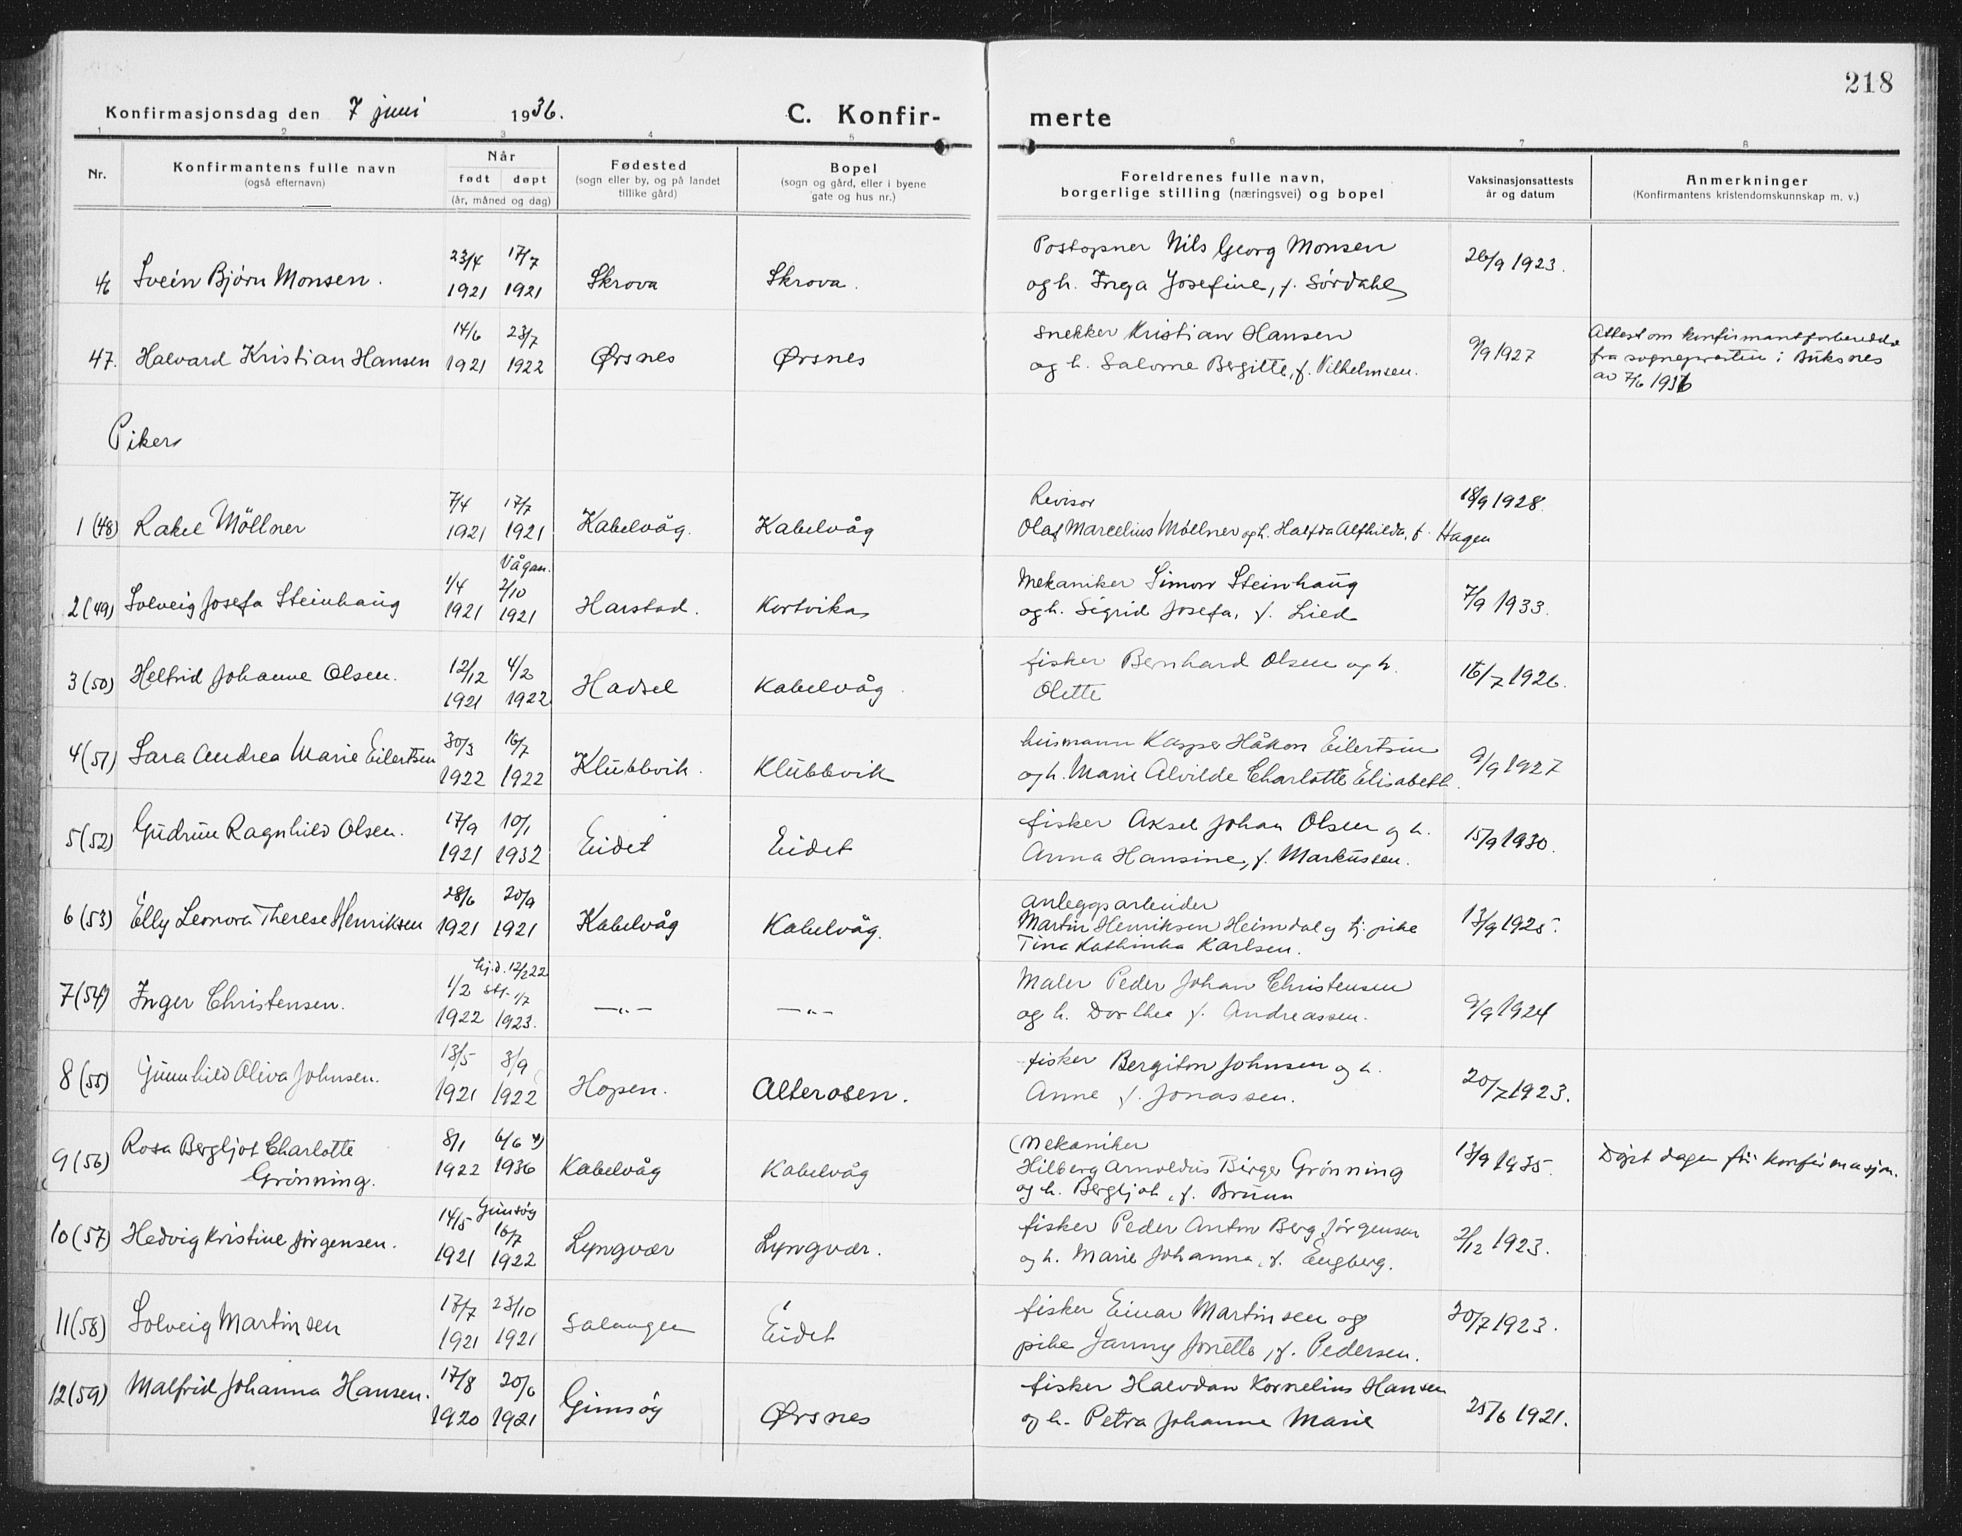 218
Konfirmasjonsdag den 7 juni 1936.
C. Konfir-
merte
1 2 3 4 5 6 7 8
Nr.
Konfirmantens fulle navn
(også efternavn)
Når
født døpt
(år, måned og dag)
Fødested
(sogn eller by, og på landet
tillike gård)
Bopel
(sogn og gård, eller i byene
gate og hus nr.)
Foreldrenes fulle navn,
borgerlige stilling (næringsvei) og bopel
Vaksinasjonsattests
år og datum
Anmerkninger
(Konfirmantens kristendomskunnskap m. v.)
23/4 17/7 Postopner Nils Georg Monsen 26/9 1923.
46 Svein Bjørn Monsen. 1921 1921 Skrova Skrova. og h. Inga Josefine, f. Sørdahl
14/6 23/7 Snekker Kristian Hansen 9/9 1927 Attest om konfirmantforberedelse
47. Halvard Kristian Hansen 1921 1922 Ørsnes Ørsnes og h. Salome Bergitte, f. Vilhelmsen. fra sognepresten i Buksnes
av 7/6 1936
Piker
7/4 17/7 Revisor 18/9 1928.
1 (48) Rakel Möllner 1921 1921 Kabelvåg. Kabelvåg Olaf Marcelius Møllner og h. Halfda Alfhilda, f. Hagen
Vågan.
1/4 2/10 Mekaniker Simon Steinhaug 7/9 1933.
2 (49) Solveig Josefa Steinhaug 1921 1921 Harstad. Kortvika og h. Sigrid Josefa, f. Lied
12/12 4/2 fisker Bernhard Olsen og h. 16/7 1926.
3 (50) Helfrid Johanne Olsen. 1921 1922 Hadsel Kabelvåg. Olette
30/3 16/7 husmann Kasper Håkon Eilertsen 9/9 1927
4 (51) Sara Andrea Marie Eilertsen 1922 1922 Klubbvik. Klubbvik og h. Marie Alvilde Charlotte Elisabeth.
17/9 10/1 fisker Aksel Johan Olsen og h. 15/9 1930.
5 (52) Gudrun Ragnhild Olsen. 1921 1932 Eidet Eidet Anna Hansine, f. Markussen.
28/6 20/9 anleggsarbeider 13/9 1925.
6 (53) Elly Leonora Therese Henriksen 1921 1921 Kabelvåg Kabelvåg. Martin Henriksen Heimdal og pike
Tina Kathinka Karlsen.
hj.d. 12/2 22
1/2 st. 1/7 Maler Peder Johan Christensen 9/9 1924
7 (54) Inger Christensen. 1922 1923. —„— —„— og h. Dorthea f. Andreassen.
13/5 3/9 fisker Bergiton Johnsen og h. 20/7 1923.
8 (55) Gunnhild Oliva Johnsen. 1921 1922 Hopen. Alterosen. Anne f. Jonassen.
Rosa Bergljot Charlotte 8/1 6/6 (Mekaniker 13/9 1935. Døpt dagen før konfirmasjon.
9 (56) Grønning. 1922 1936 Kabelvåg Kabelvåg Hilberg Arnoldus Birger Grønning
og h. Bergljot, f. Bruun
14/5 Gimsøy 16/7 fisker Peder Anton Berg Jørgensen 2/12 1923.
10 (57) Hedvig Kristine Jørgensen. 1921 1922 Lyngvær Lyngvær. og h. Marie Johanna, f. Engberg.
17/7 23/10 fisker Einar Martinsen og 30/7 1923.
11 (58) Solveig Martinsen 1921 1921 Salangen Eidet pike Janny Jonette, f. Pedersen.
17/8 20/6 fisker Halvdan Kornelius Hansen 25/6 1921.
12 (59) Malfrid Johanna Hansen. 1920 1921 Gimsöy Ørsnes og h. Petra Johanne Marie